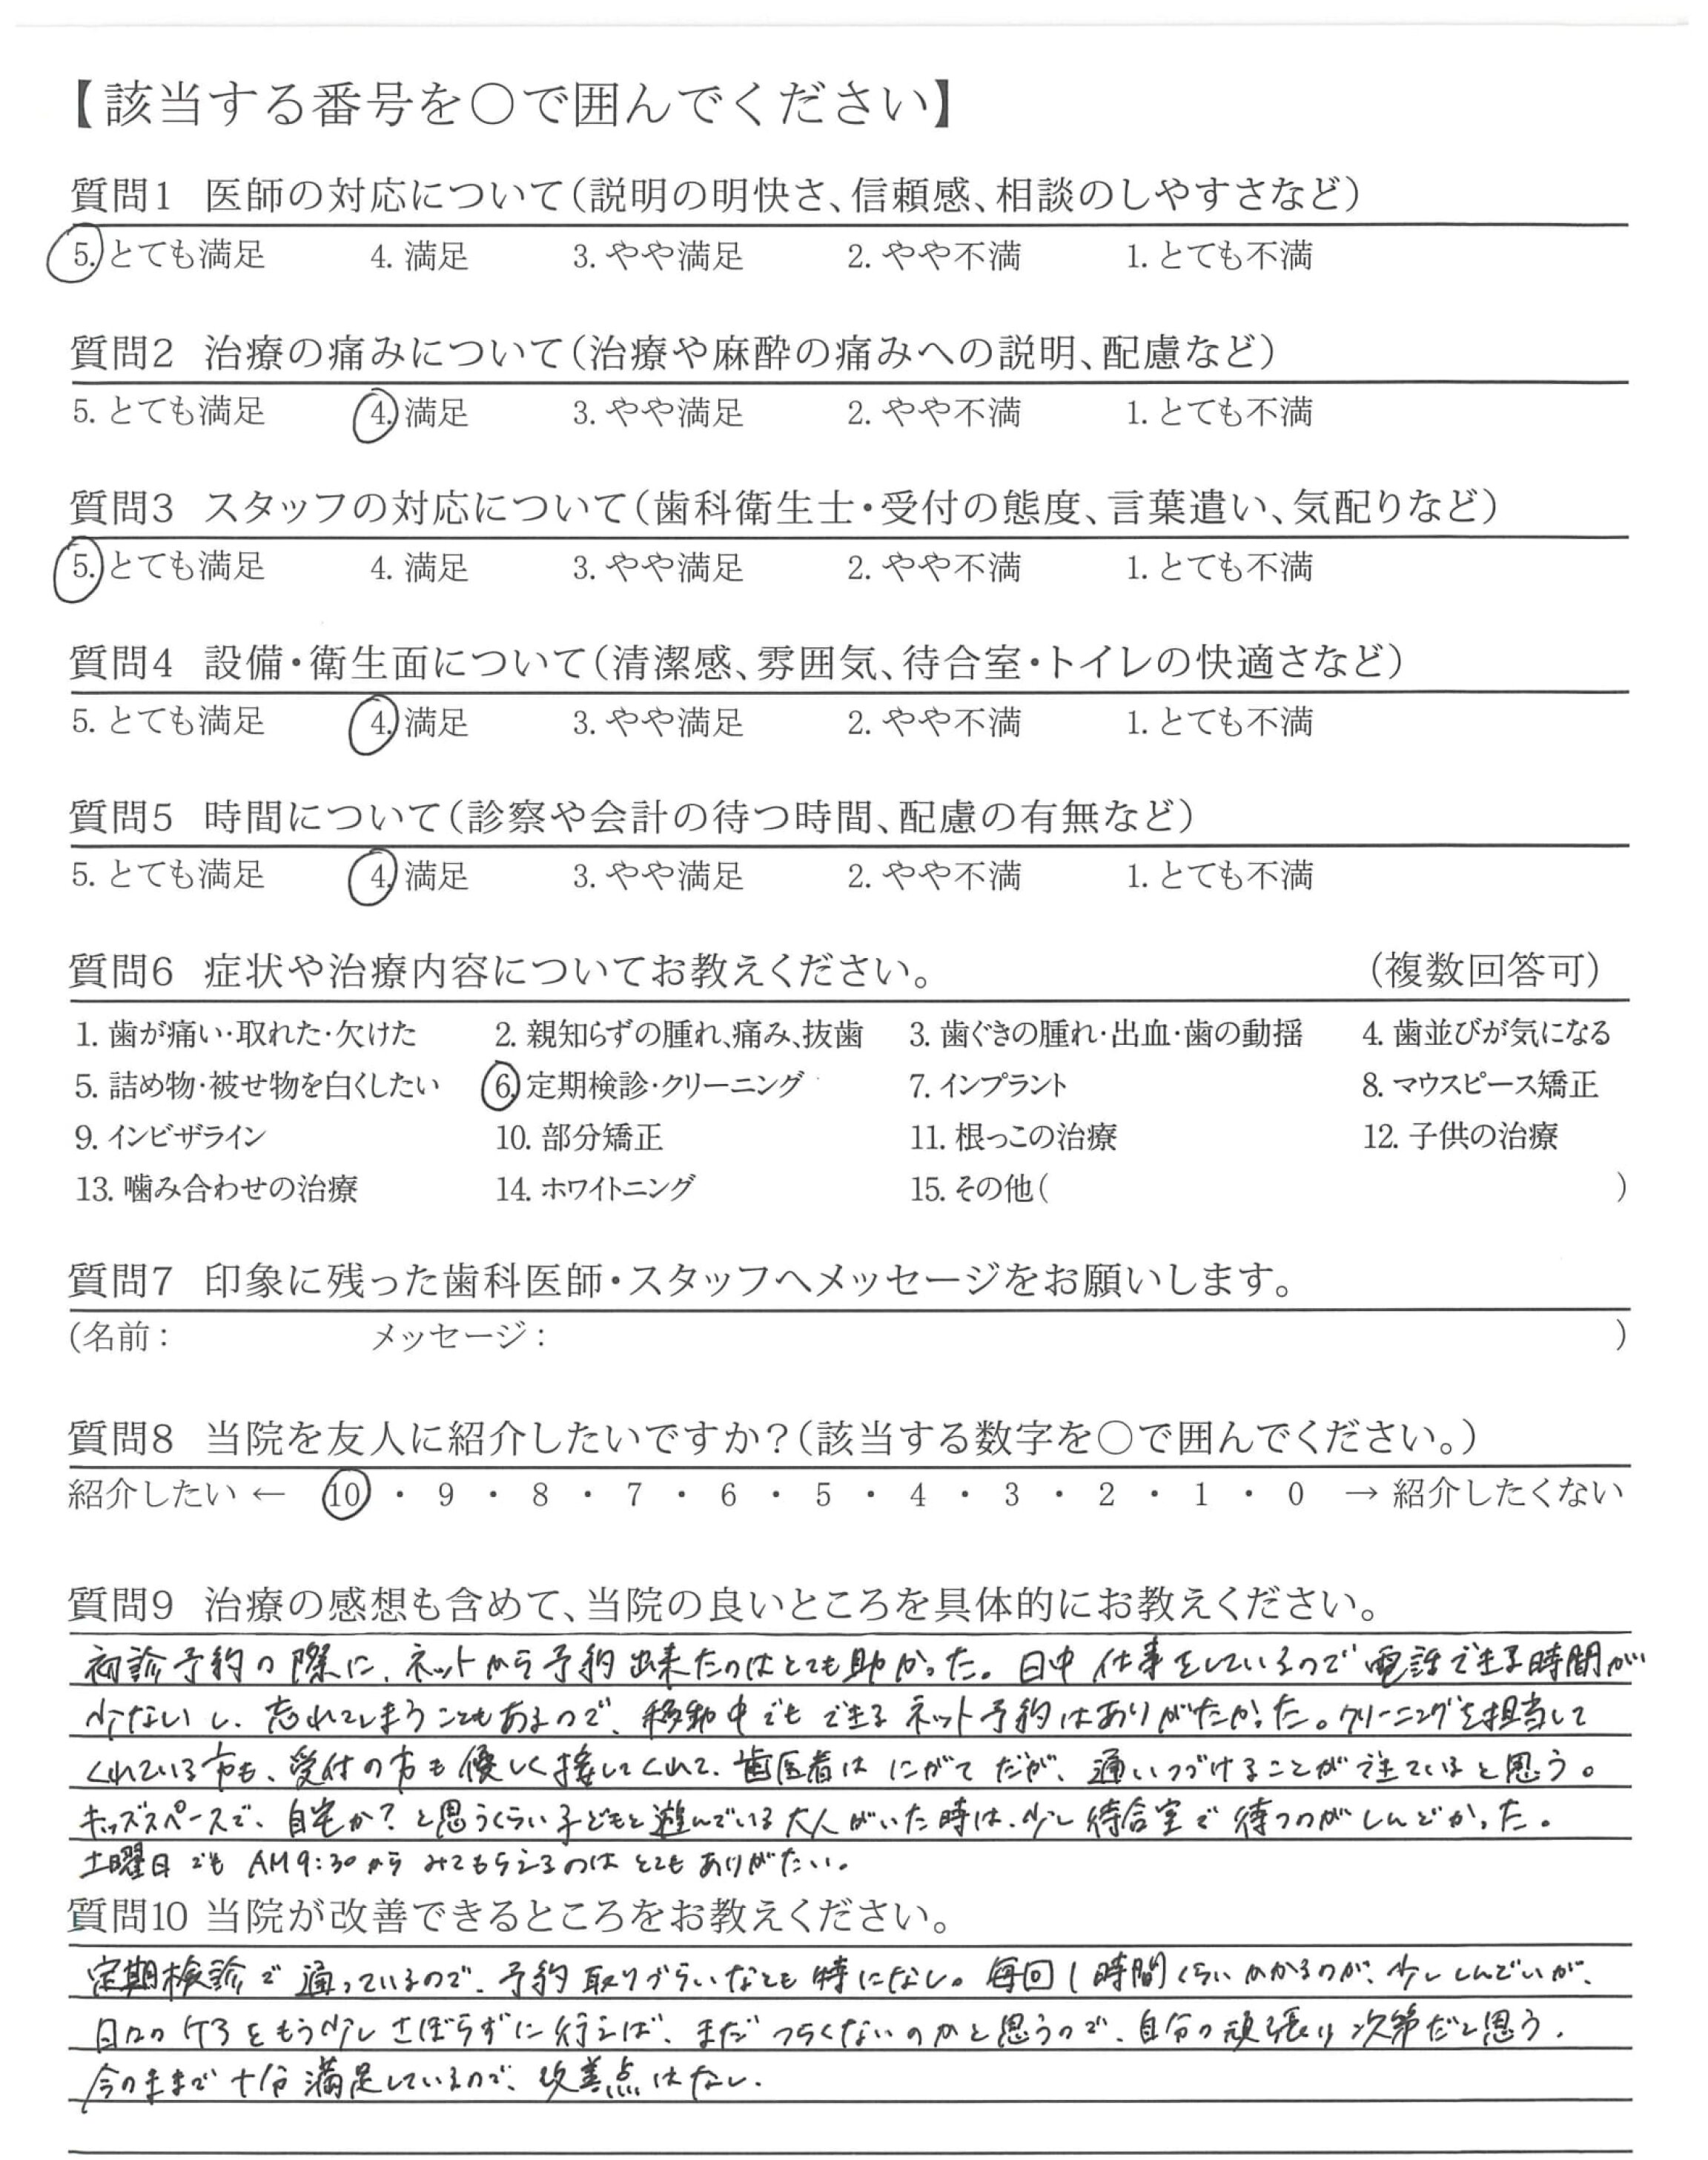 【該当する番号を○で囲んでください】
質問1 医師の対応について(説明の明快さ、信頼感、相談のしやすさなど)
5. とても満足 4. 満足 3. やや満足 2. やや不満 1. とても不満
質問2 治療の痛みについて(治療や麻酔の痛みへの説明、配慮など)
5. とても満足 4. 満足 3. やや満足 2. やや不満 1. とても不満
質問3 スタッフの対応について(歯科衛生士・受付の態度、言葉遣い、気配りなど)
5. とても満足 4. 満足 3. やや満足 2. やや不満 1. とても不満
質問4 設備・衛生面について(清潔感、雰囲気、待合室・トイレの快適さなど)
5. とても満足 4. 満足 3. やや満足 2. やや不満 1. とても不満
質問5 時間について(診察や会計の待つ時間、配慮の有無など)
5. とても満足 4. 満足 3. やや満足 2. やや不満 1. とても不満
質問6 症状や治療内容についてお教えください。 (複数回答可)
1. 歯が痛い・取れた・欠けた 2. 親知らずの腫れ、痛み、抜歯 3. 歯ぐきの腫れ・出血・歯の動揺 4. 歯並びが気になる
5. 詰め物・被せ物を白くしたい 6. 定期検診・クリーニング 7. インプラント 8. マウスピース矯正
9. インビザライン 10. 部分矯正 11. 根っこの治療 12. 子供の治療
13. 噛み合わせの治療 14. ホワイトニング 15. その他( )
質問7 印象に残った歯科医師・スタッフへメッセージをお願いします。
(名前: メッセージ: )
質問8 当院を友人に紹介したいですか?(該当する数字を○で囲んでください。)
紹介したい ← 10 ・ 9 ・ 8 ・ 7 ・ 6 ・ 5 ・ 4 ・ 3 ・ 2 ・ 1 ・ 0 → 紹介したくない
質問9 治療の感想も含めて、当院の良いところを具体的にお教えください。
初診予約の際に、ネットから予約出来たのはとても助かった。日中仕事をしているので電話できる時間が
少ないし、忘れてしまうこともあるので、移動中でもできるネット予約はありがたかった。クリーニングを担当して
くれている方も、受付の方も優しく接してくれて、歯医者はにがてだが、通いつづけることができていると思う。
キッズスペースで、自宅か?と思うくらい子どもと遊んでいる大人がいた時は、少し待合室で待つのがしんどかった。
土曜日でもAM9:30からみてもらえるのはとてもありがたい。
質問10 当院が改善できるところをお教えください。
定期検診で通っているので、予約取りづらいなども特になし。毎回1時間くらいかかるのが、少ししんどいが、
日々のケアをもう少しさぼらずに行えば、まだつらくないのかと思うので、自分の頑張り次第だと思う。
今のままで十分満足しているので、改善点はなし。